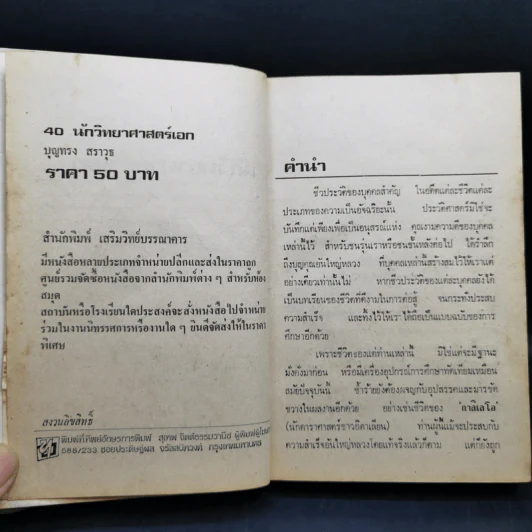 40 นักวิทยาศาสตร์เอก
บุญทรง สราวุธ
ราคา 50 บาท
สำนักพิมพ์ เสริมวิทย์บรรณาคาร
มีหนังสือหลายประเภทจำหน่ายปลีกและส่งในราคาถูก
ศูนย์รวมจัดซื้อหนังสือจากสำนักพิมพ์ต่าง ๆ สำหรับห้อง
สมุด
สถาบันหรือโรงเรียนใดประสงค์จะสั่งหนังสือไปจำหน่าย
ร่วมในงานนิทรรศการหรืองานใด ๆ ยินดีจัดส่งให้ในราคา
พิเศษ
สงวนลิขสิทธิ์
พิมพ์ที่ทิพย์อักษรการพิมพ์ สุเทพ จิตต์ธรรมวาณิช ผู้พิมพ์ผู้โฆษณา
588/233 ซอยประดิษฐ์ผล จรัลสนิทวงศ์ กรุงเทพมหานคร
คำนำ
ชีวประวัติของบุคคลสำคัญ ในอดีตแต่ละชีวิตแต่ละ
ประเภทของความเป็นอัจฉริยะนั้น ประวัติศาสตร์มิใช่จะ
บันทึกแต่เพียงเพื่อเป็นอนุสรณ์แห่ง คุณงามความดีของบุคคล
เหล่านี้ไว้ สำหรับชนรุ่นเราหรือชนชั้นหลังต่อไป ได้รำลึก
ถึงบุญคุณอันใหญ่หลวง ที่บุคคลเหล่านี้สร้างสมไว้ให้เราแต่
อย่างเดียวเท่านั้นไม่ หากชีวประวัติของแต่ละบุคคลยังได้
เป็นบทเรียนของชีวิตที่ดีงามในการต่อสู้ จนกระทั่งประสบ
ความสำเร็จ และทิ้งไว้ให้เราได้ถือเป็นแบบฉบับของการ
ศึกษาอีกด้วย
เพราะชีวิตของแต่ท่านเหล่านี้ มิใช่แต่จะมีฐานะ
มั่งคั่งมาก่อน หรือมีเครื่องอุปกรณ์การศึกษาทดเทียมเหมือน
สมัยปัจจุบันนี้ ซ้ำร้ายยังต้องผจญกับอุปสรรคและมารขัด
ขวางในผลงานอีกด้วย อย่างเช่นชีวิตของ "กาลิเลโอ"
(นักดาราศาสตร์ชาวอิตาเลียน) ท่านผู้นี้แม้จะประสบกับ
ความสำเร็จอันใหญ่หลวงโดยแท้จริงแล้วก็ตาม แต่ก็ยังถูก